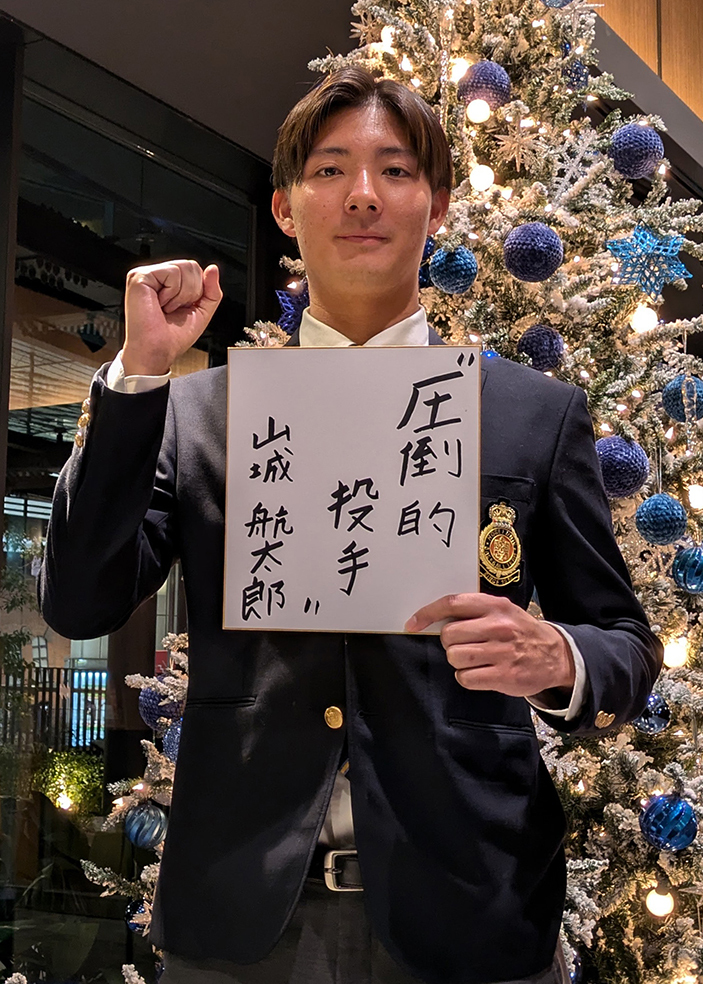 〝圧倒的
投手
山城 航太郎〟